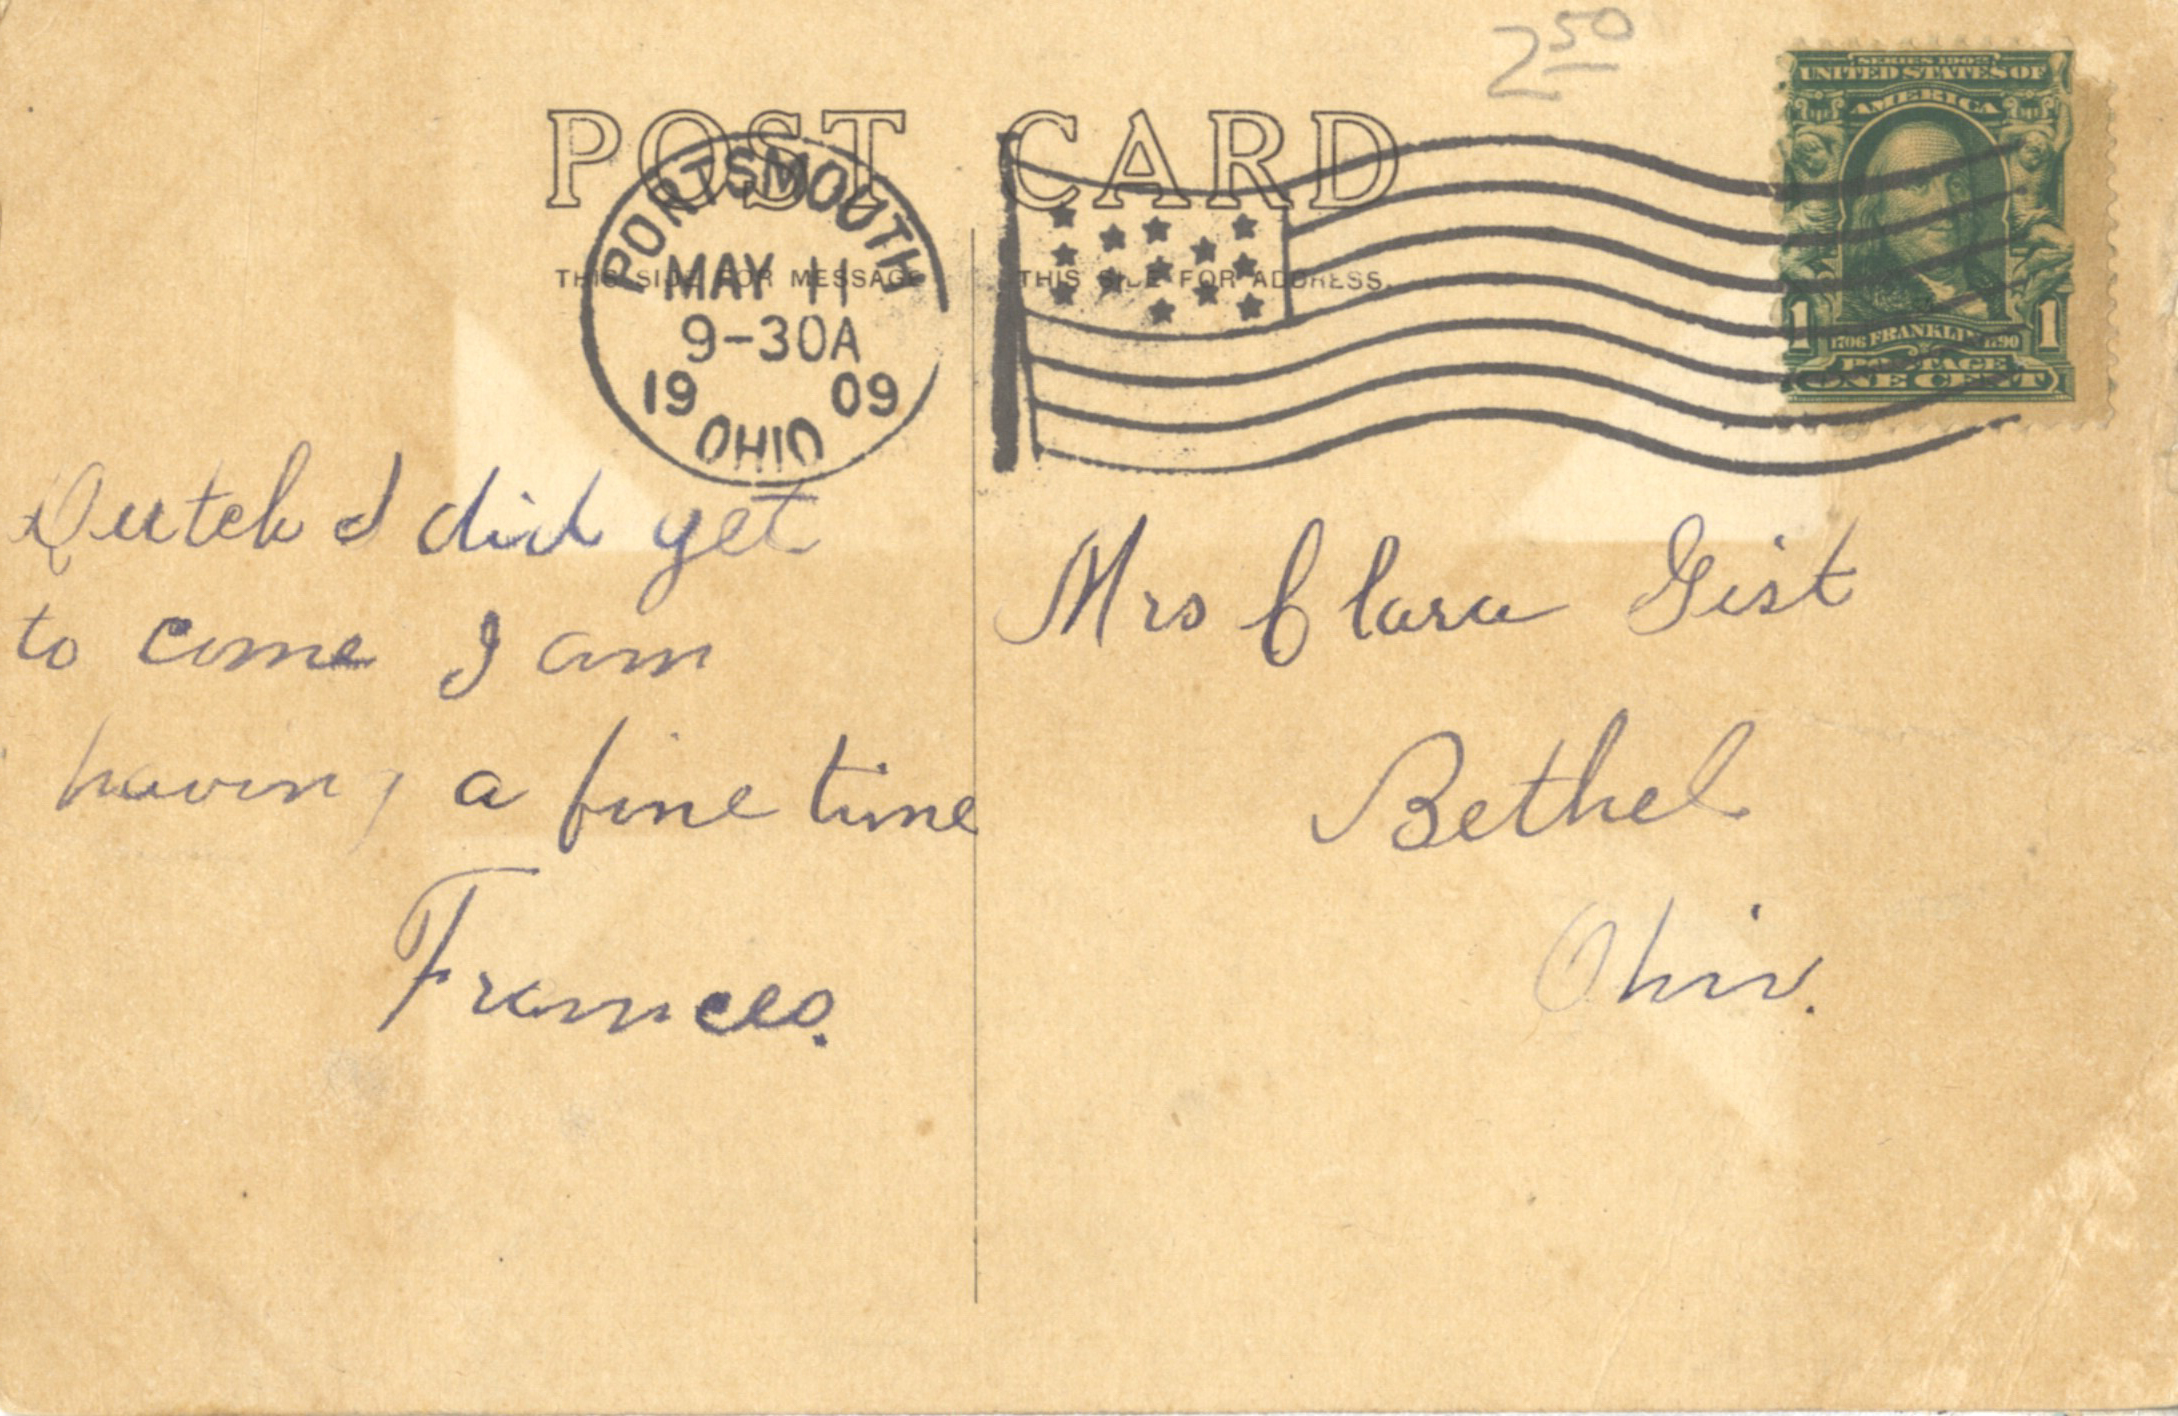 2 50
POST CARD
PORTSMOUTH
MAY 11
9-30A
19 09
OHIO
THIS SIDE FOR MESSAGE
THIS SIDE FOR ADDRESS.
SERIES 1902
UNITED STATES OF
AMERICA
1 1706 FRANKLIN 1790 1
POSTAGE
ONE CENT
Dutch I did get
to come I am
having a fine time
Frances.
Mrs Clara Gist
Bethel
Ohio.